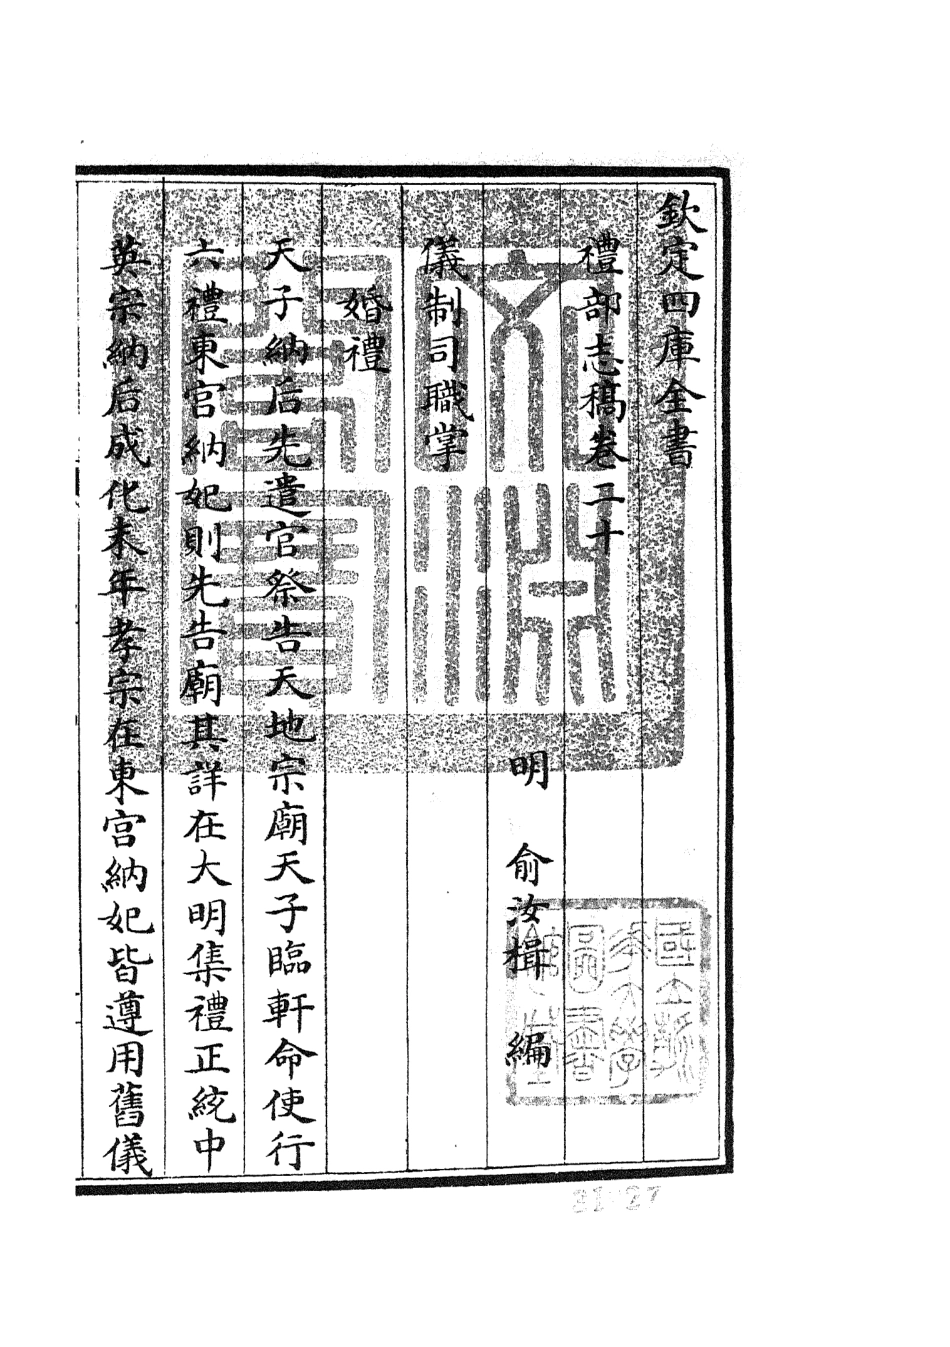 欽定四庫全書
禮部志稿卷二十
明 俞汝楫 編
儀制司職掌
婚禮
天子納后先遣官祭告天地宗廟天子臨軒命使行
六禮東宮納妃則先告廟其詳在大明集禮正統中
英宗納后成化末年孝宗在東宮納妃皆遵用舊儀